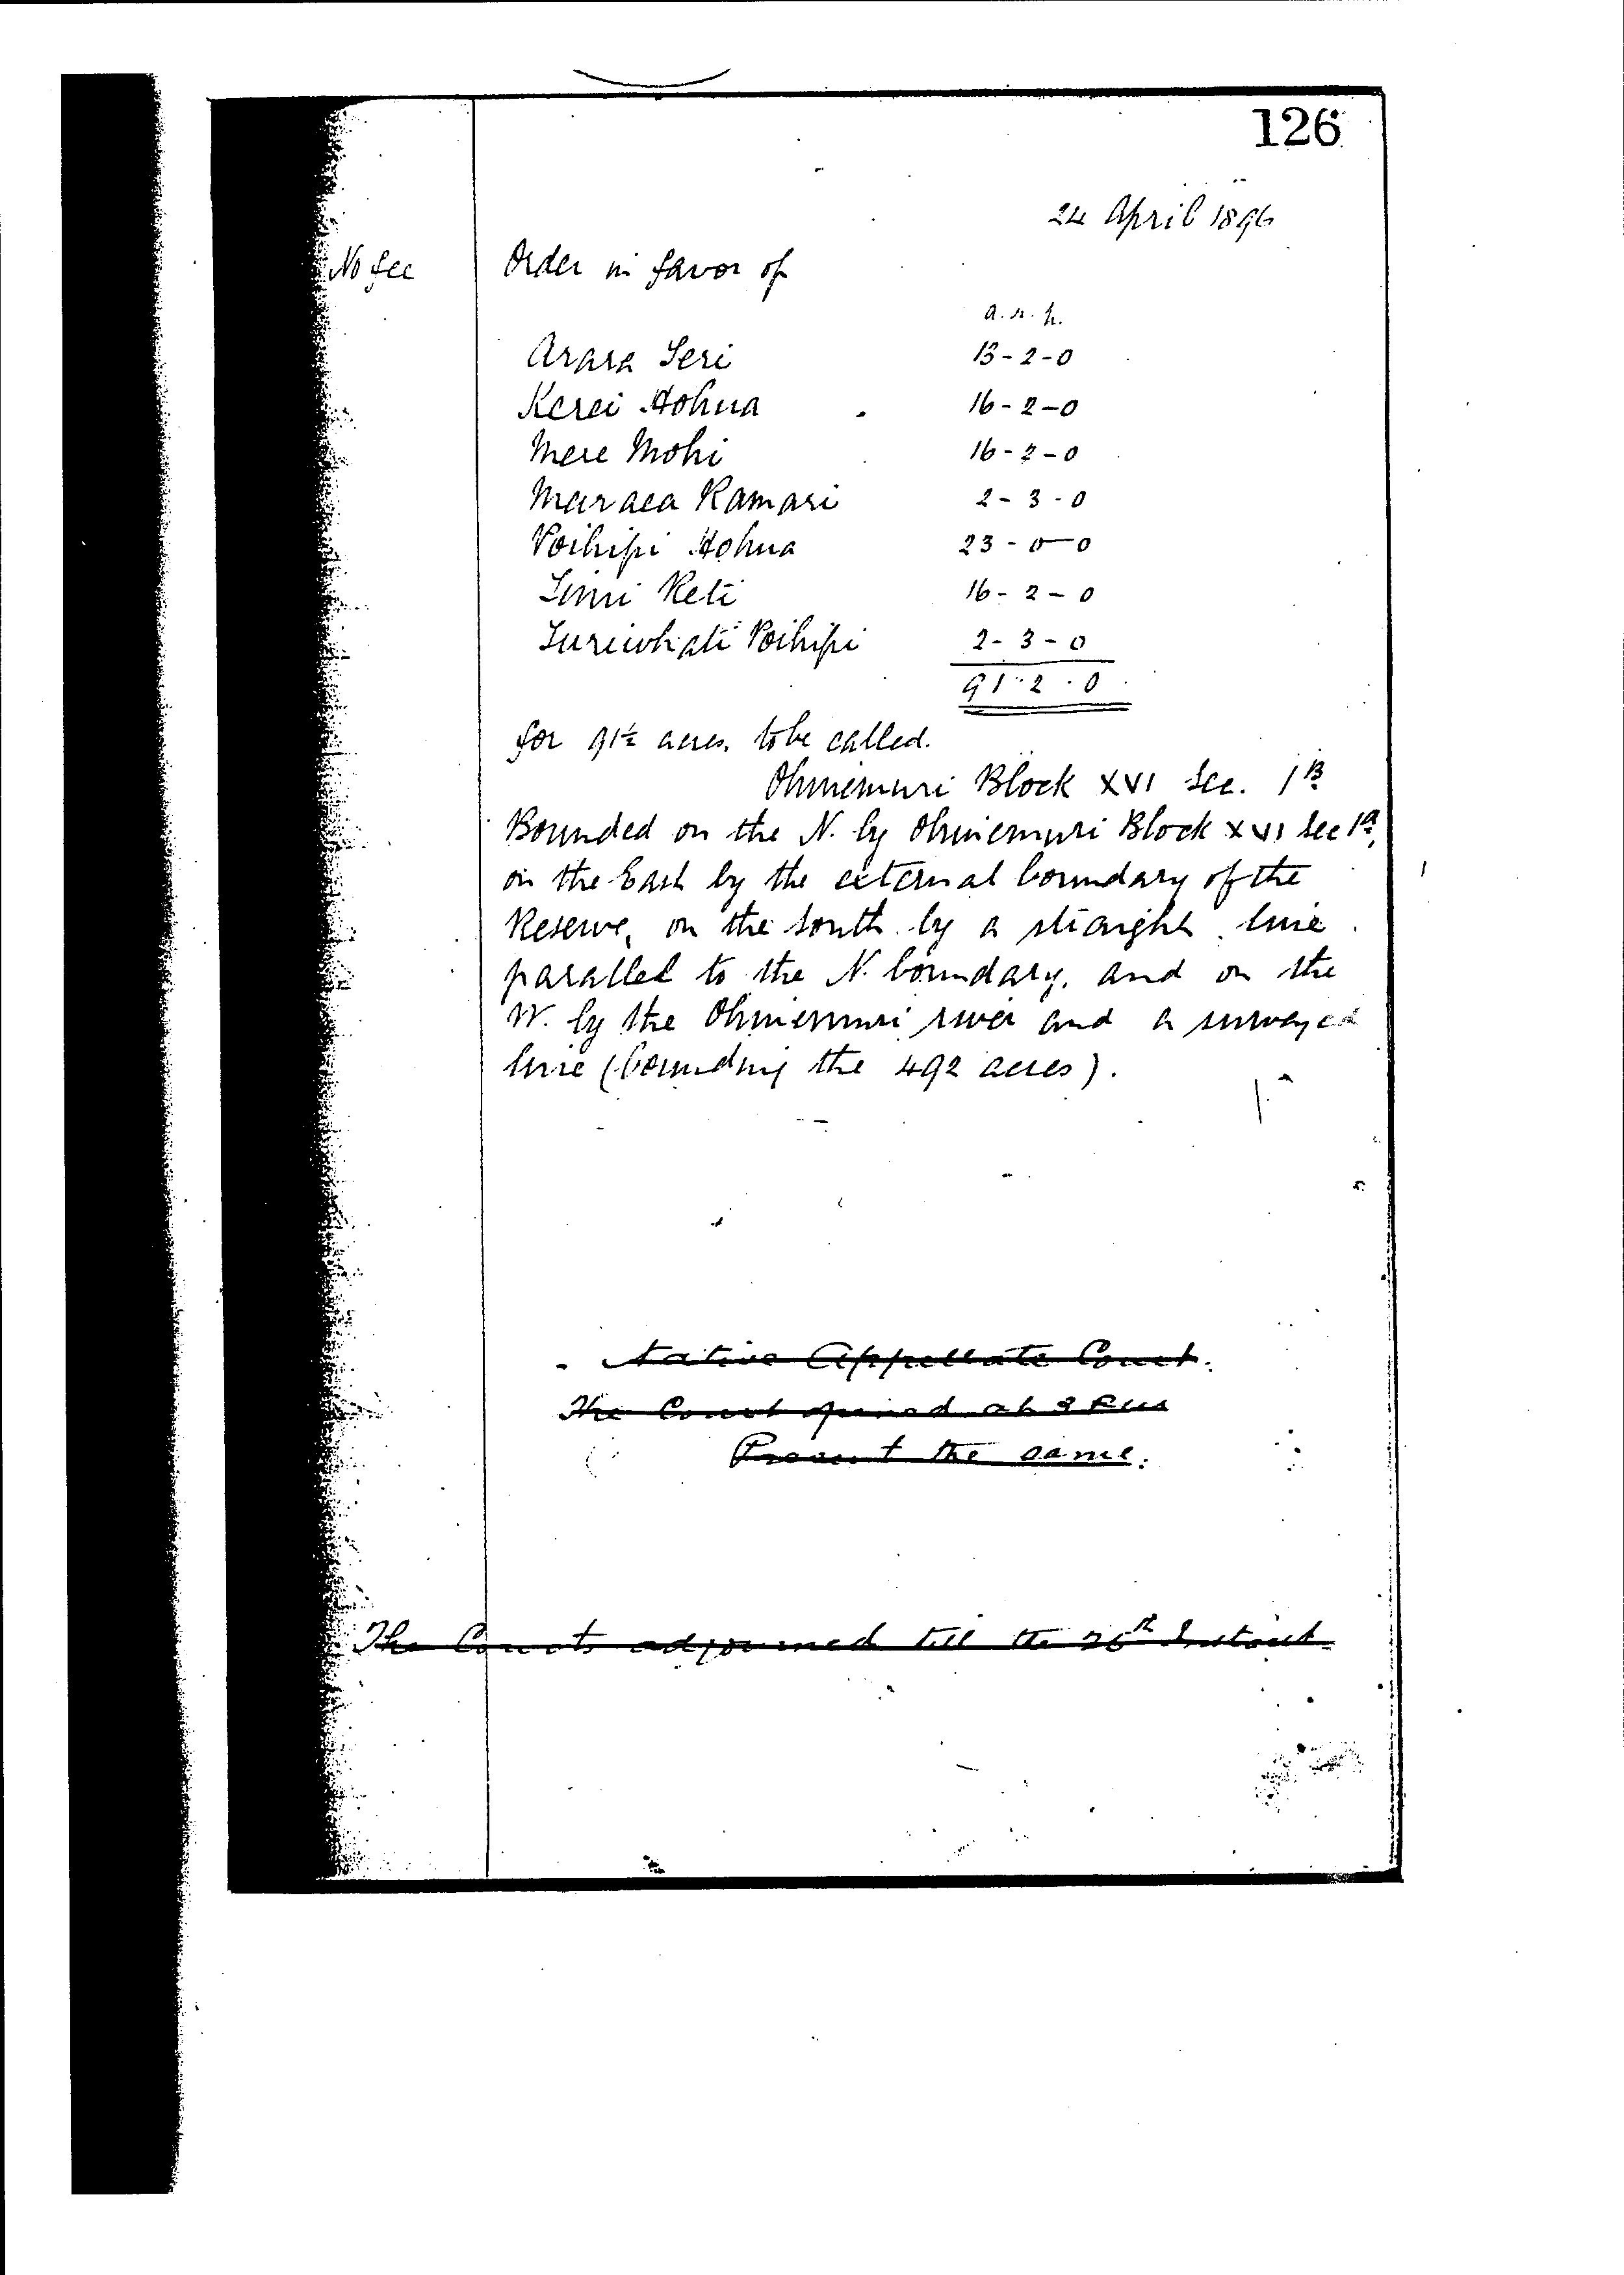 126
24 April 1896
No fee
Order in favor of
a. r. p.
Arara Teri 13-2-0
Kerei Hohua 16-2-0
Mere Mohi 16-2-0
Maraea Kamari 2-3-0
Poihipi Hohua 23-0-0
Timi Reti 16-2-0
Turiwhati Poihipi 2-3-0
91.2.0
for 91½ acres. to be called.
Ohinemuri Block XVI Sec. 1B
Bounded on the N. by Ohinemuri Block XVI Sec 1a,
on the East by the external boundary of the
Reserve, on the South by a straight line
parallel to the N. boundary, and on the
W. by the Ohinemuri river and a surveyed
line (bounding the 492 acres).
Native Appellate Court.
The Court opened at
Present the same.
The Courts adjourned till the 26th Instant